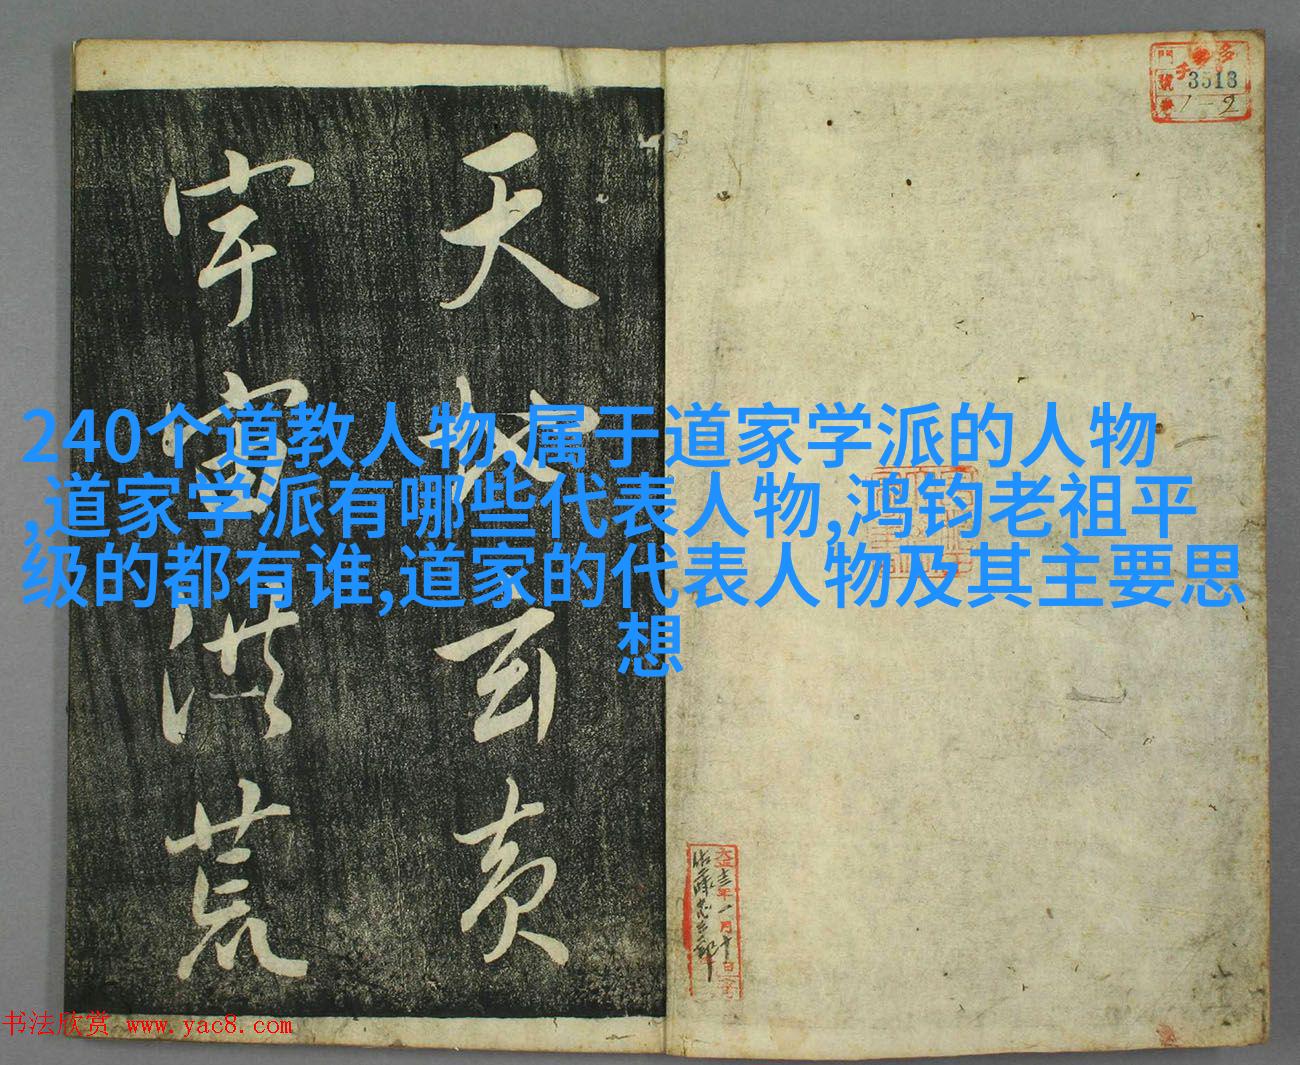 天地玄黄
宇宙洪荒
3513
1-2
240个道教人物,属于道家学派的人物
,道家学派有哪些代表人物,鸿钧老祖平
级的都有谁,道家的代表人物及其主要思
想
书法欣赏 www.yac8.com